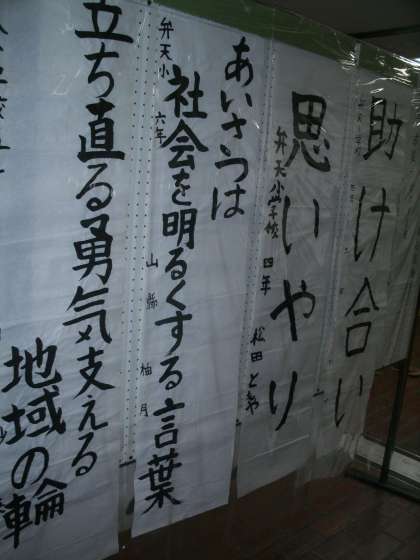 助け合い
思いやり
弁天小学校 四年 松田と
あいさつは
社会を明るくする言葉
弁天小 六年 山縣柚月
立ち直る勇気支える
地域の輪